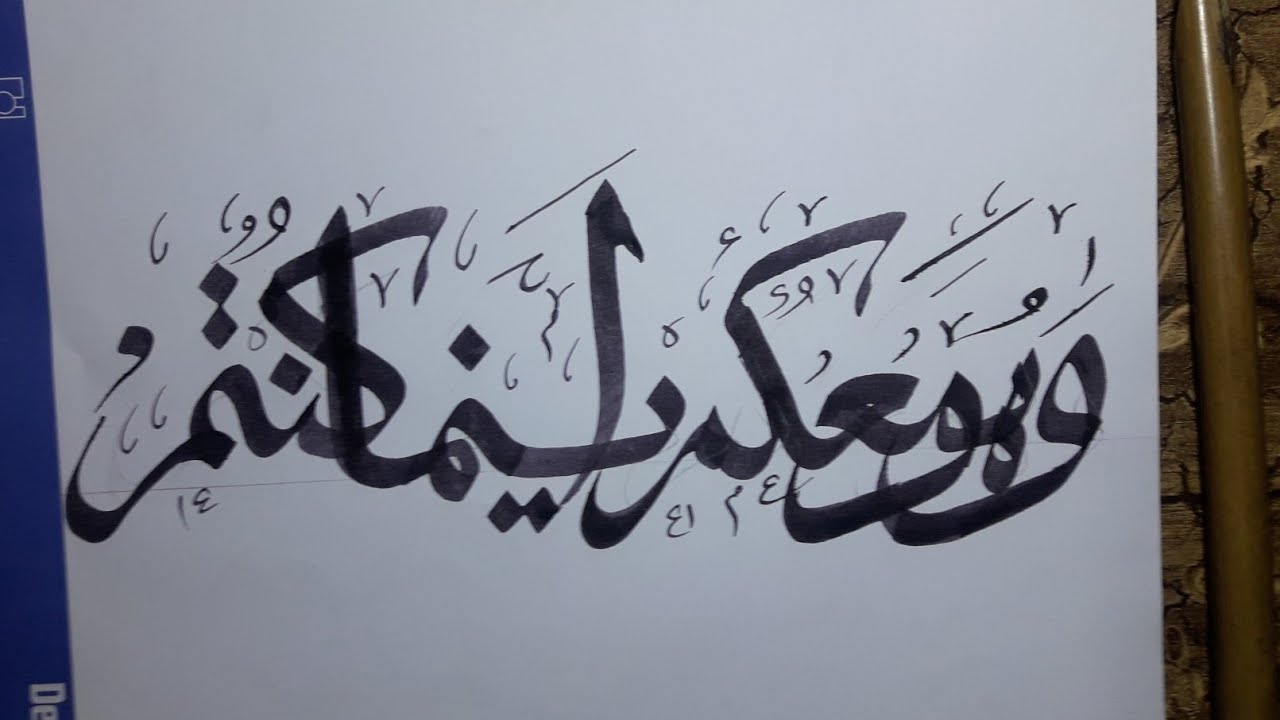 وَهُوَ مَعَكُمْ أَيْنَمَا كُنْتُمْ
De